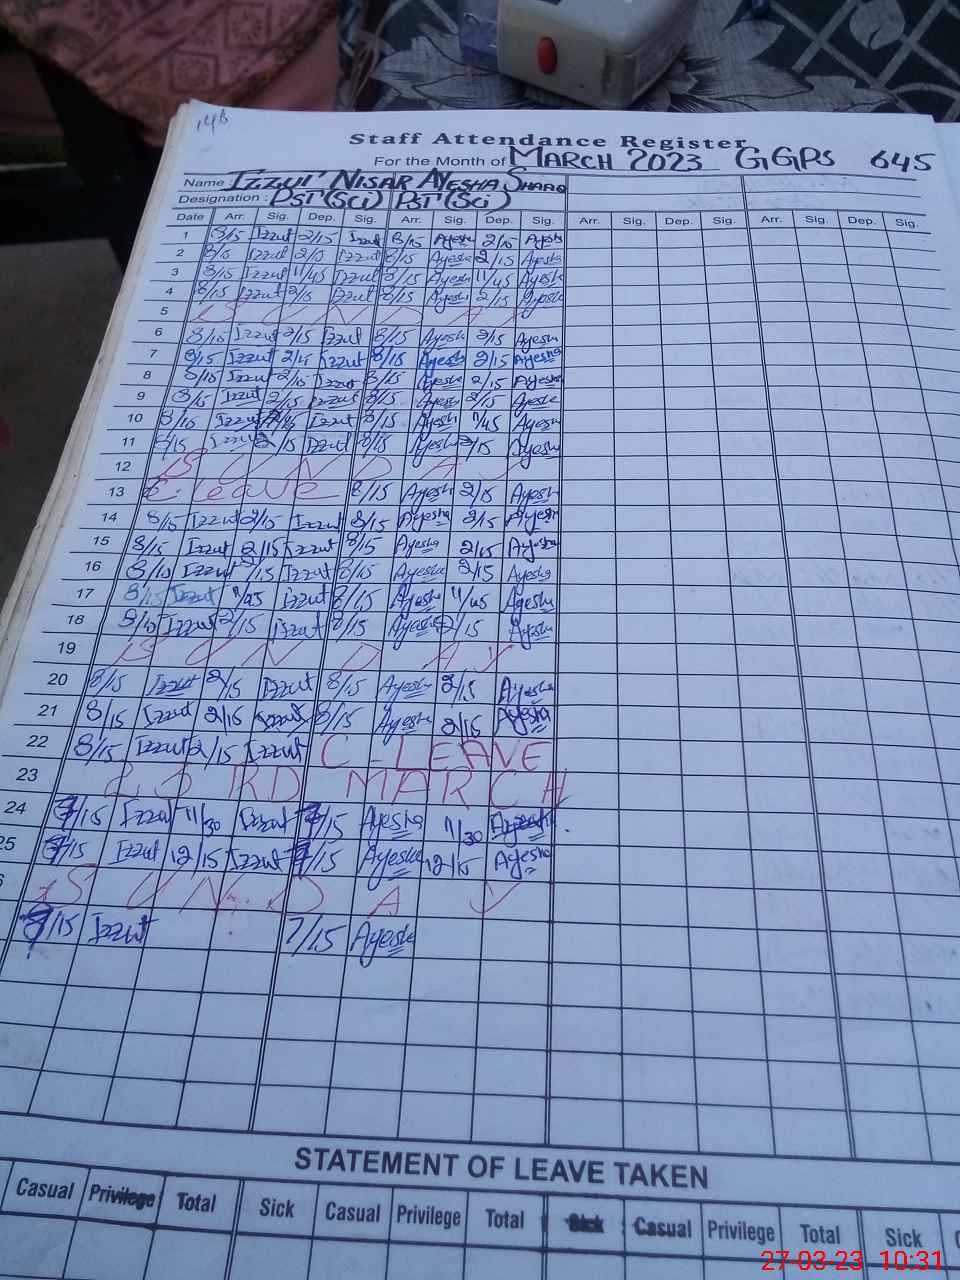 146
Staff Attendance Register
For the Month of MARCH 2023 GGPS 645
Name IZZUT NISAR AYESHA
Designation : PST (Sci) PST (Sci)
Date Arr. Sig. Dep. Sig. Arr. Sig. Dep. Sig. Arr. Sig. Dep. Sig. Arr. Sig. Dep. Sig.
1 8/15 Izzut 2/15 Izzut 8/15 Ayesha 2/15 Ayesha
2 8/15 Izzut 2/15 Izzut 8/15 Ayesha 2/15 Ayesha
3 8/15 Izzut 11/45 Izzut 8/15 Ayesha 11/45 Ayesha
4 8/15 Izzut 2/15 Izzut 8/15 Ayesha 2/15 Ayesha
5 SUNDAY
6 8/15 Izzut 2/15 Izzut 8/15 Ayesha 2/15 Ayesha
7 8/15 Izzut 2/15 Izzut 8/15 Ayesha 2/15 Ayesha
8 8/15 Izzut 2/15 Izzut 8/15 Ayesha 2/15 Ayesha
9 8/15 Izzut 2/15 Izzut 8/15 Ayesha 2/15 Ayesha
10 8/15 Izzut Izzut 8/15 Ayesha 11/45 Ayesha
11 8/15 Izzut 2/15 Izzut 8/15 Ayesha 2/15 Ayesha
12 SUNDAY
13 C. leave 8/15 Ayesha 2/15 Ayesha
14 8/15 Izzut 2/15 Izzut 8/15 Ayesha 2/15 Ayesha
15 8/15 Izzut 2/15 Izzut 8/15 Ayesha 2/15 Ayesha
16 8/15 Izzut 2/15 Izzut 8/15 Ayesha 2/15 Ayesha
17 8/15 Izzut 11/45 Izzut 8/15 Ayesha 11/45 Ayesha
18 8/15 Izzut 2/15 Izzut 8/15 Ayesha 2/15 Ayesha
19 SUNDAY
20 8/15 Izzut 2/15 Izzut 8/15 Ayesha 2/15 Ayesha
21 8/15 Izzut 2/15 Izzut 8/15 Ayesha 2/15 Ayesha
22 8/15 Izzut 2/15 Izzut C-LEAVE
23 23RD MARCH
24 7/15 Izzut 11/30 Izzut 7/15 Ayesha 11/30 Ayesha
25 7/15 Izzut 12/15 Izzut 7/15 Ayesha 12/15 Ayesha
6 SUNDAY
7/15 Izzut 7/15 Ayesha
STATEMENT OF LEAVE TAKEN
Casual Privilege Total Sick Casual Privilege Total Sick Casual Privilege Total Sick
27-03-23 10:31